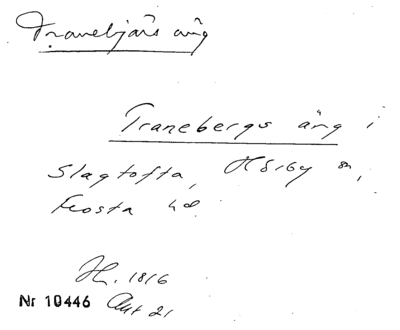 Tranebjärs äng
Tranebergs äng i
Slagtofta, Hörby sn,
Frosta hd
H. 1816
Nr 10446 Akt 21